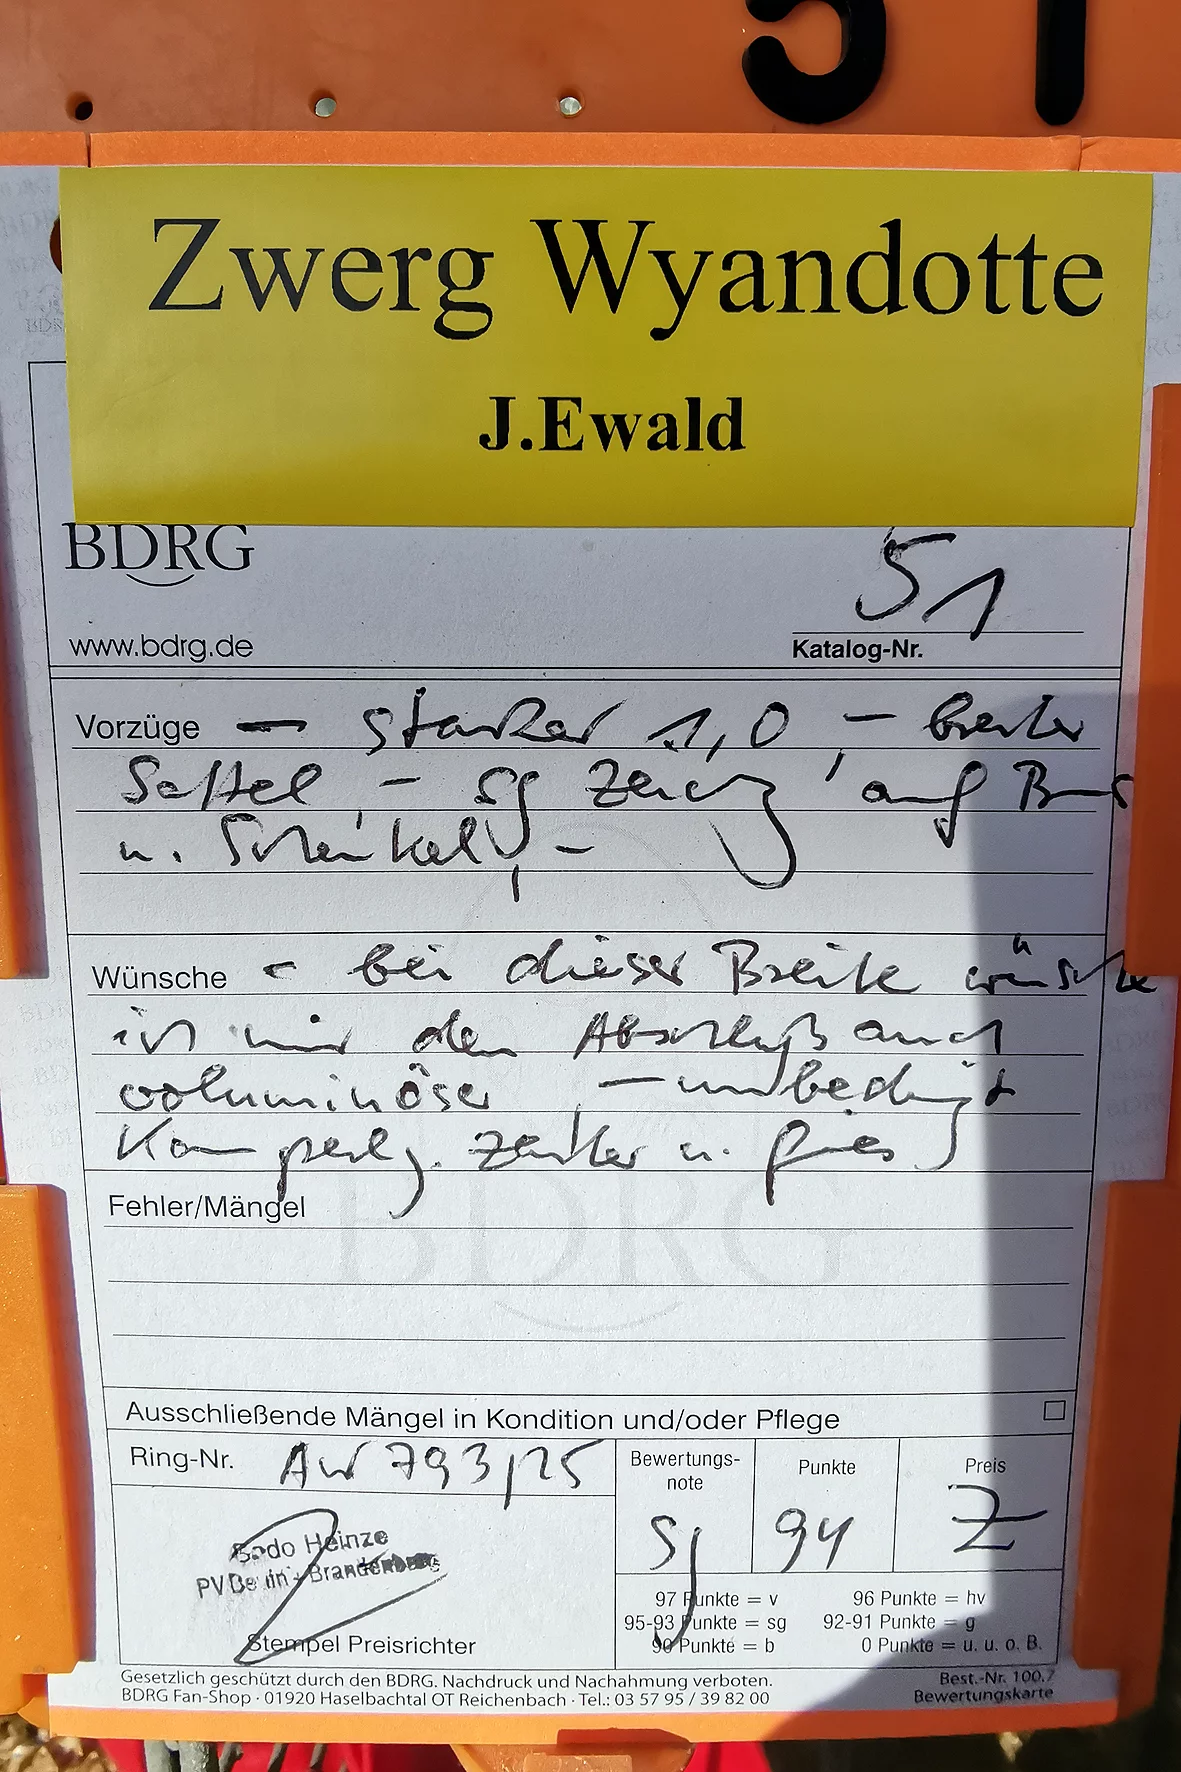 51
Zwerg Wyandotte
J.Ewald
BDRG
51
www.bdrg.de
Katalog-Nr.
Vorzüge – starker 1,0, – breiter
Sattel, – sg Zeichg auf Brust
u. Schenkel, –
Wünsche – bei dieser Breite wünschte
ich mir den Abschluß auch
voluminöser, – unbedingt
Kamperlg. zarter u.
Fehler/Mängel
BDRG
Ausschließende Mängel in Kondition und/oder Pflege
Ring-Nr. AW 793/25
Bewertungs-
note
Punkte
Preis
sg 94 Z
Bodo Heinze
PV Berlin-Brandenburg
97 Punkte = v 96 Punkte = hv
95-93 Punkte = sg 92-91 Punkte = g
90 Punkte = b 0 Punkte = u. u. o. B.
Stempel Preisrichter
Gesetzlich geschützt durch den BDRG. Nachdruck und Nachahmung verboten.
BDRG Fan-Shop · 01920 Haselbachtal OT Reichenbach · Tel.: 03 57 95 / 39 82 00
Best.-Nr. 100.7
Bewertungskarte